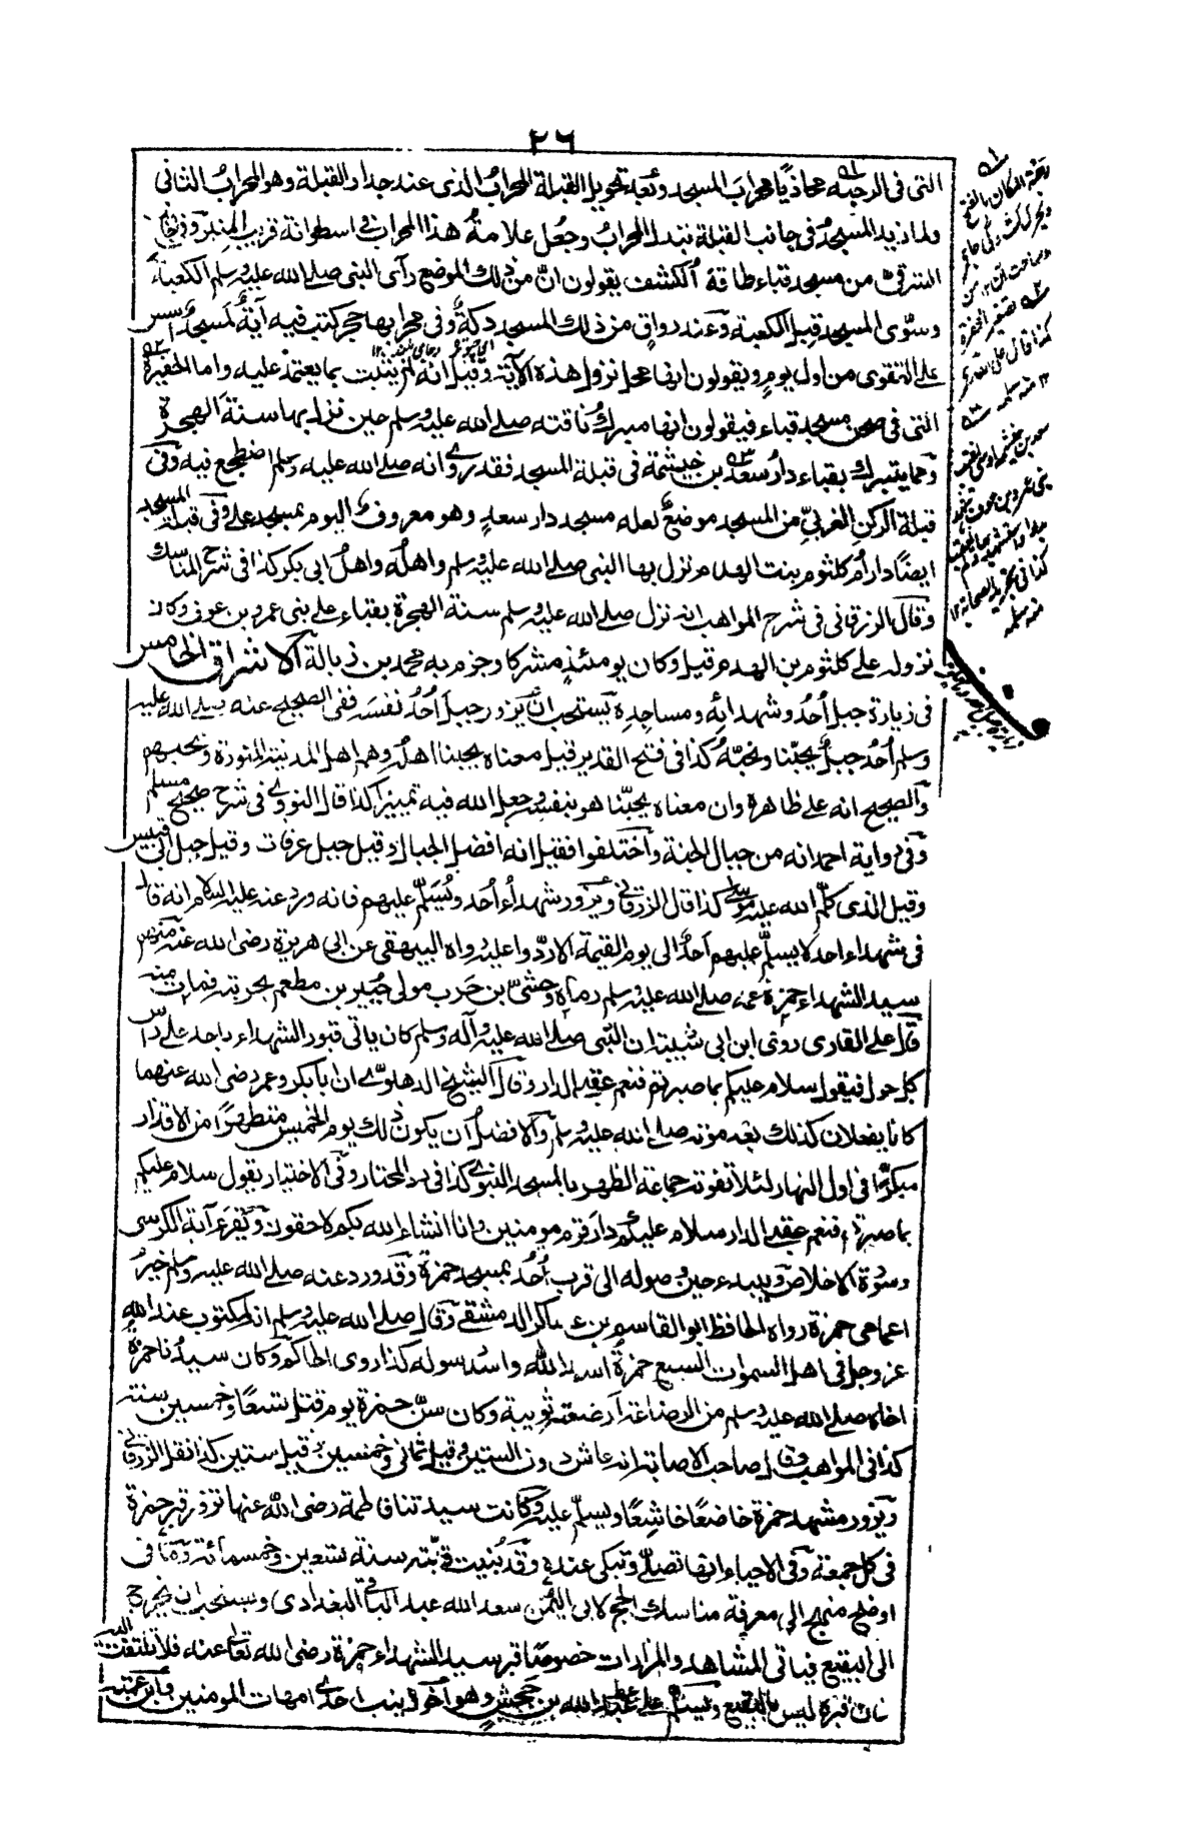 ٢٦
التى فى الرحبة محاذيًا محراب المسجد وبعد تحويل القبلة المحراب الذى عند جدار القبلة وهو المحراب الثانى
ولما زيد المسجد فى جانب القبلة تبدل المحراب وجعل علامة هذا المحراب فى اسطوانة قريب المنبر وفى
الشرقى من مسجد قباء طاقة الكشف يقولون ان من ذلك الموضع رآى النبى صلى الله عليه وسلم الكعبة
وسوّى المسجد قبل الكعبة وعند رواق من ذلك المسجد دكة وفى محرابها حجر كتب فيه آية لمسجد اسس
على التقوى من اول يوم ويقولون انها محل نزول هذه الآية وقيل انه لم يثبت بما يعتمد عليه واما الحفيرة
التى فى صحن مسجد قباء فيقولون انها مبرك ناقته صلى الله عليه وسلم حين نزل بها سنة الهجرة
ومما يتبرك بقباء دار سعد بن خيثمة فى قبلة المسجد فقد روى انه صلى الله عليه وسلم اضطجع فيه وفى
قبلة الركن الغربى من المسجد موضع لعله مسجد دار سعد وهو معروف اليوم بمسجد على وفى قبلة المسجد
ايضًا دار ام كلثوم بنت الهدم نزل بها النبى صلى الله عليه وسلم واهله واهل ابى بكر كذا فى شرح المناسك
وقال الزرقانى فى شرح المواهب انه نزل صلى الله عليه وسلم سنة الهجرة بقباء على بنى عمرو بن عوف وكان
نزوله على كلثوم بن الهدم قيل وكان يومئذ مشركا وجزم به محمد بن زبالة الاشراق الخامس
فى زيارة جبل أحد وشهدائه ومساجده يستحب ان يزور جبل أحد نفسه ففى الصحيح عنه صلى الله عليه
وسلم أحد جبل يحبنا ونحبه كذا فى فتح القدير قيل معناه يحبنا اهله وهم اهل المدينة المنورة ونحبهم
والصحيح انه على ظاهره وان معناه يحبّنا هو بنفسه وجعل الله فيه تمييزا كذا قال النووى فى شرح صحيح مسلم
وفى رواية احمد انه من جبال الجنة واختلفوا فقيل انه افضل الجبال وقيل جبل عرفات وقيل جبل ابى قبيس
وقيل الذى كلّم الله عليه موسى كذا قال الزرقانى ويزور شهداء أحد ويسلم عليهم فانه ورد عنه عليه السلام انه قال
فى شهداء احد لا يسلم عليهم احد الى يوم القيمة الا ردّوا عليه رواه البيهقى عن ابى هريرة رضى الله عنه
سيد الشهداء حمزة عمه صلى الله عليه وسلم رماه وحشى بن حرب مولى جبير بن مطعم بحربته فمات منه
قال على القارى روى ابن ابى شيبة ان النبى صلى الله عليه وآله وسلم كان ياتى قبور الشهداء باحد على راس
كل حول فيقول سلام عليكم بما صبرتم فنعم عقبى الدار وقال الشيخ الدهلوى ان ابا بكر وعمر رضى الله عنهما
كانا يفعلان كذلك بعد موته صلى الله عليه وسلم والافضل ان يكون ذلك يوم الخميس متطهرًا من الاقذار
مبكرًا فى اول النهار لئلا تفوته جماعة الظهر بالمسجد النبوى كذا فى رد المحتار وفى الاختيار يقول سلام عليكم
بما صبرتم فنعم عقبى الدار سلام عليكم دار قوم مومنين وانا انشاء الله بكم لاحقون ويقرء آية الكرسى
وسورة الاخلاص ويبدء حين وصوله الى قرب أحد بمسجد حمزة وقد ورد عنه صلى الله عليه وسلم خير
اعمامى حمزة رواه الحافظ ابو القاسم بن عساكر الدمشقى وقال صلى الله عليه وسلم انه لمكتوب عند الله
عز وجل فى اهل السموات السبع حمزة اسد الله واسد رسوله كذا روى الحاكم وكان سيدنا حمزة
اخاه صلى الله عليه وسلم من الرضاعة ارضعته ثويبة وكان سن حمزة يوم قتل تسعًا وخمسين سنة
كذا فى المواهب وقال صاحب الاصابة انه عاش دون الستين وقيل ثمانى وخمسين وقيل ستين كذا نقل الزرقانى
ويزور مشهد حمزة خاضعًا خاشعًا ويسلم عليه وكانت سيدتنا فاطمة رضى الله عنها تزور قبر حمزة
فى كل جمعة وفى الاحياء انها تصلى وتبكى عنده وقد بنيت قبته سنة تسعين وخمسمائة وقال فى
اوضح منهج الى معرفة مناسك الحج لابى اليمن سعد الله عبد الباقى البغدادى ويستحب ان يخرج
الى البقيع فياتى المشاهد والمزارات خصوصا قبر سيد الشهداء حمزة رضى الله تعالى عنه فلا تلتفت اليه
فان قبره ليس بالبقيع ويسلم على عبد الله بن جحش وهو اخو زينب احدى امهات المومنين وابن عمته